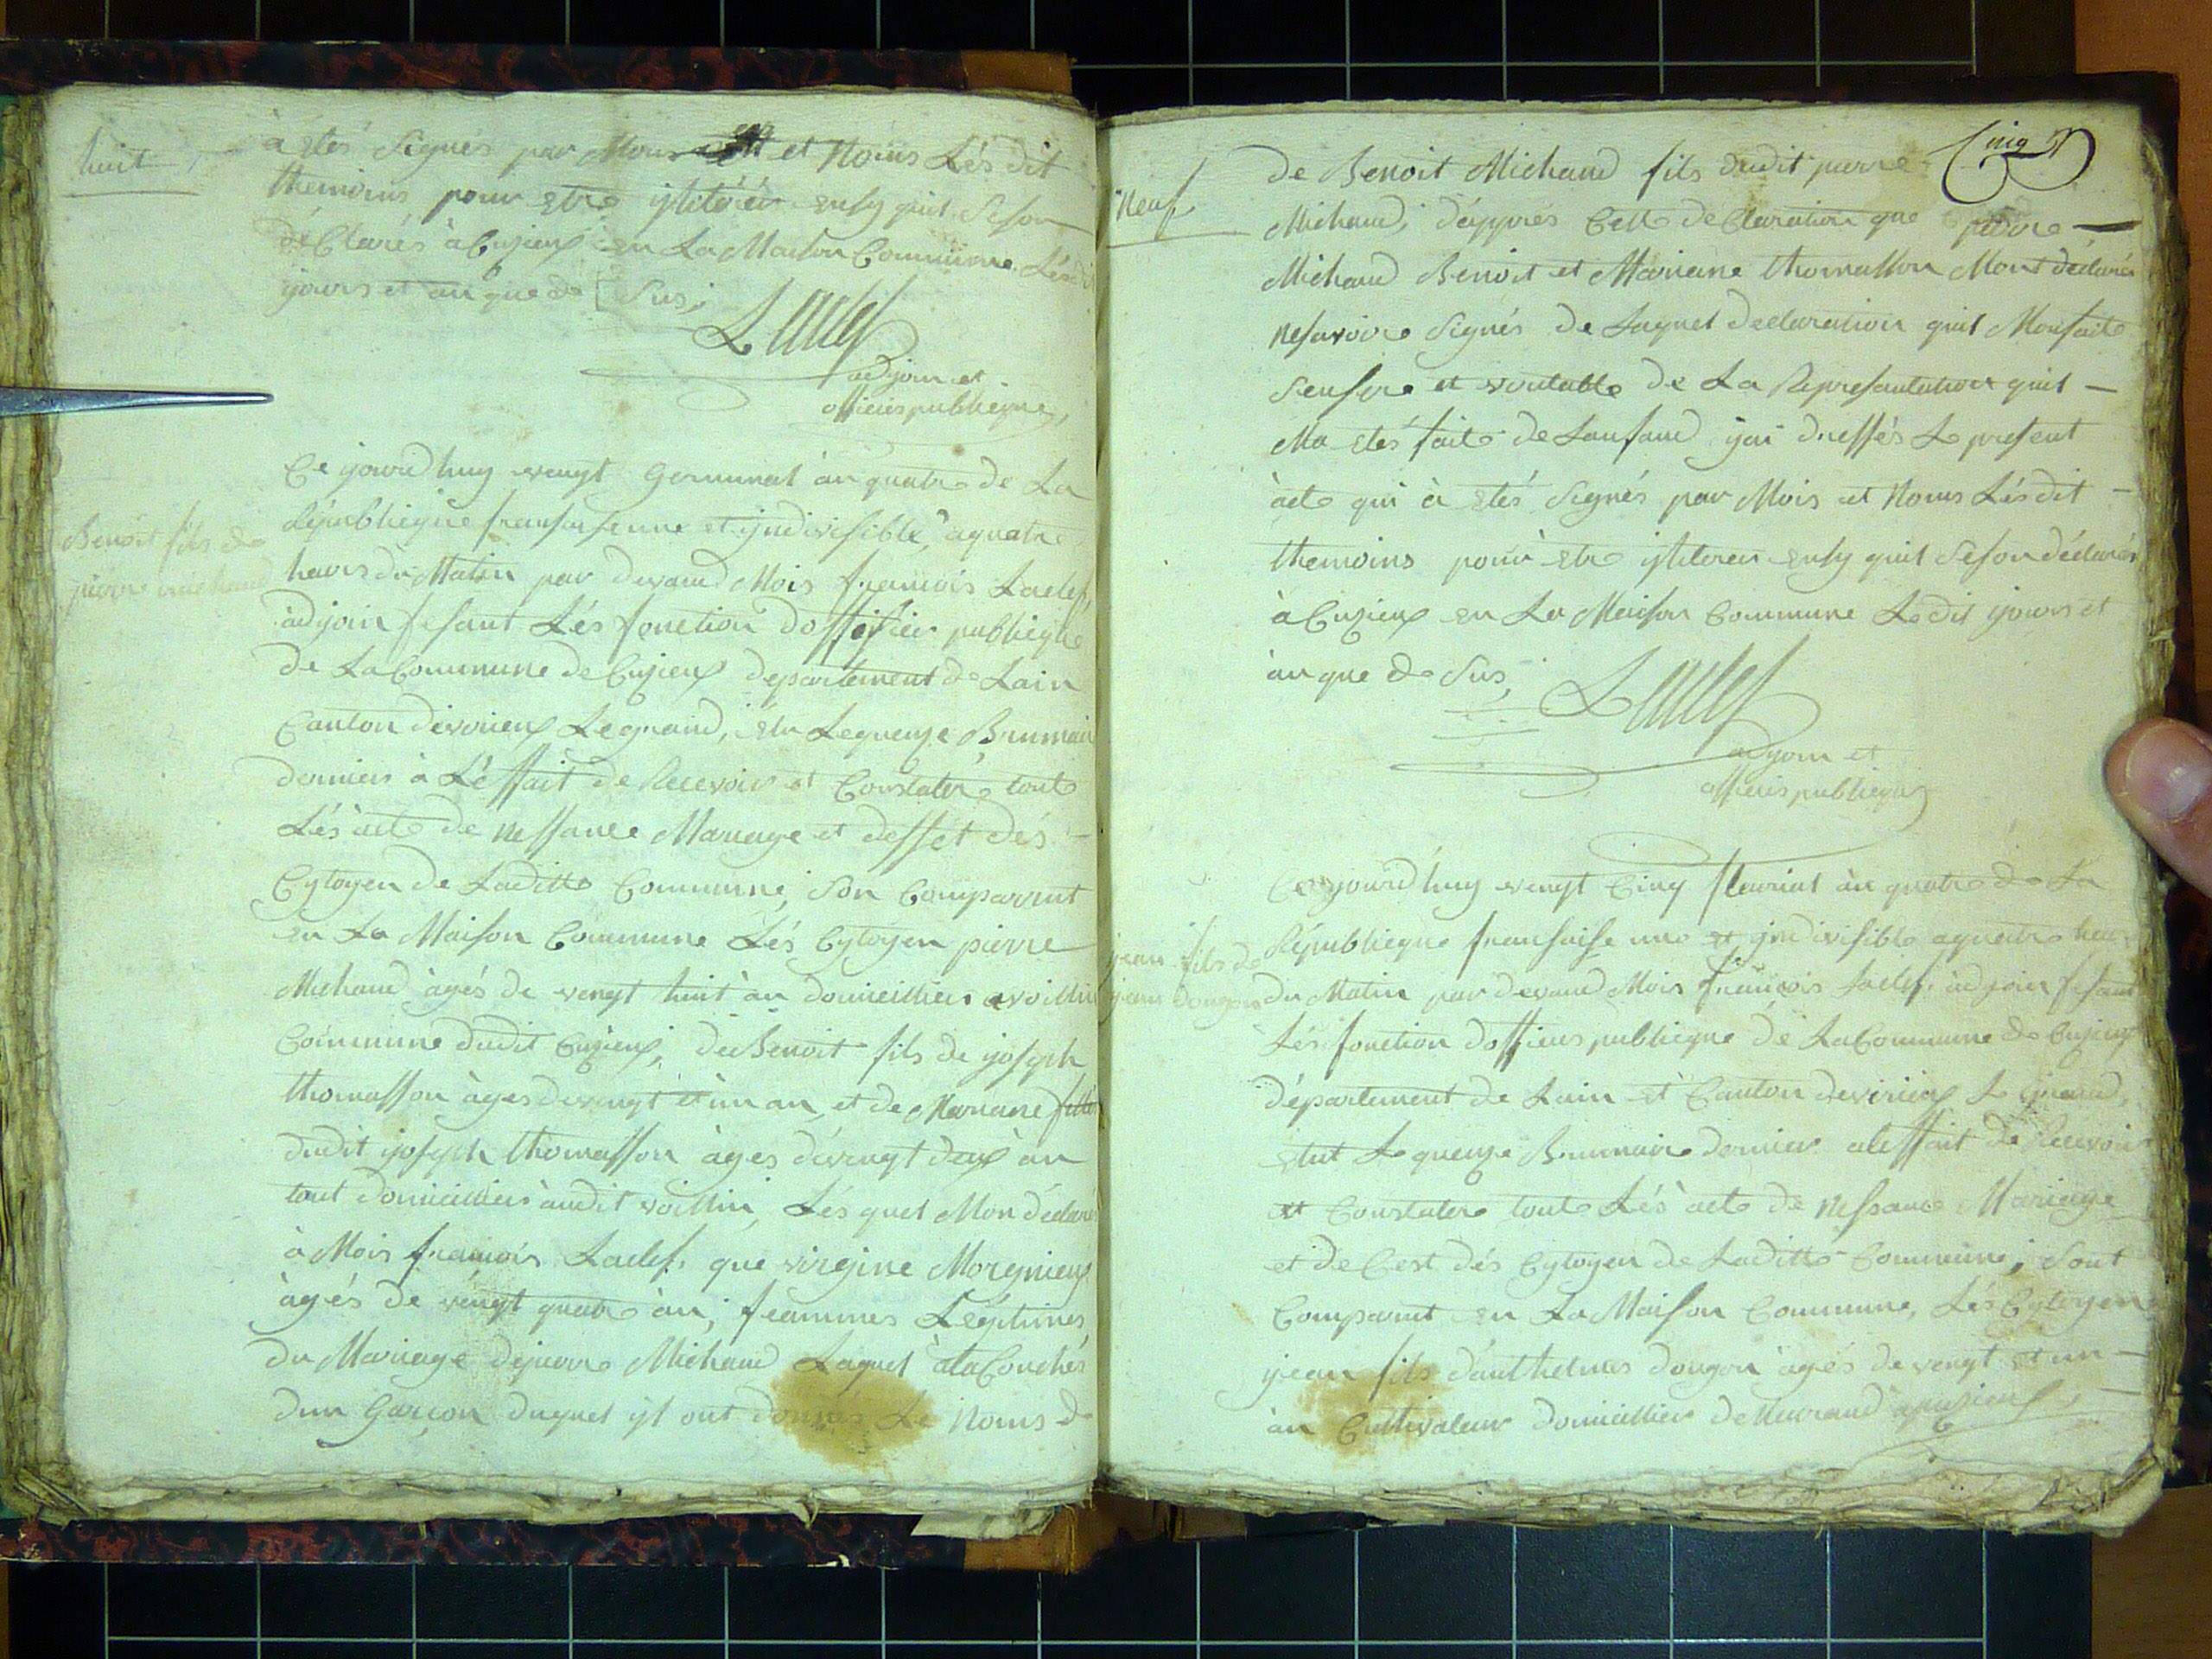 huit
à etés Signés par Mois et Noms Lés dit
themoins pour etre ysterér ensy quil Seson
déClarés à Cuzieux en La Maison Commune Lésdit
jours et an que de Sus,
Laclef
adjoin et
officiers publicque,
Benoit fils de
pierre michaud
Ce jourd'huy vengt Germinal àn quatre de La
Républicque et yndivisible, a quatre
heurs du Matin par devand Mois francois Laclef,
adjoin fesant Lés fonction dofficier publicque
de La Commune de Cuzieux departement de Lain
Canton devirieux Legrand, élu Lequenze Brumair
derniers à L'effait de Recevoir et Constatér toute
Lés acte de nessance Mariage et desset dés
Cytoyen de Laditte Commune, Son Comparrut
en La Maison Commune Lés Cytoyen pierre
Michaud àgés de vengt huit àn domicilliers avoillin
Commune dudit Cuzieux, de Benoit fils de joseph
thomasson àges devengt et un an, et de Mariane fille
dudit joseph thomasson àges devengt deux àn
tout domicilliers audit voillin, Lés quel Mon déclaré
à Mois francois Laclef, que virgine Morgnieux
àgés de vengt quatre àn, feammes Legitimes
du Mariage depierre Michaud Laquel àtaCouchés
dun Garçon duquel yl ont donnés Le Noms de
Cinq
Neuf
de Benoit Michaud fils dudit pierre
Michaud, d'apprés Cette deClaration que pierre
Michaud Benoit et Mariane thomasson Mont declarés
nesavoire Signés de Laquel declaration quil Monfaite
Sensere et veritable de La Represantation quil
Ma etés faite de Lanfand jai dressés Le present
àcte qui à etés Signés par Mois et Noms Lésdit
themoins pour etre ysterer ensy quil Seson déclarés
à Cuzieux en La Maison Commune Ledit jours et
àn que de Sus,
Laclef
adjoin et
officiers publicque
jean fils de
jean dougon
Ce jourd'huy vengt Cinq fleurial àn quatre de La
Républicque fransaise une et yndivisible aquatre heur
du Matin par devand Mois francois Laclef adjoin fesant
Lés fonction dofficiers publicque de La Commune de Cuzieux
département de Lain et Canton devirieux Le Grand,
elut Lequenze Brumaire dernier aleffait de Recevoir
et Constatere toute Lés acte de nessance Mariage
et deCest dés Cytoyen de Laditte Commune, Sont
Comparut en La Maison Commune, Lés Cytoyen
jean fils danthelmes dougon àgés de vengt et un
àn Cultivateur domicillier de Cuzieux,